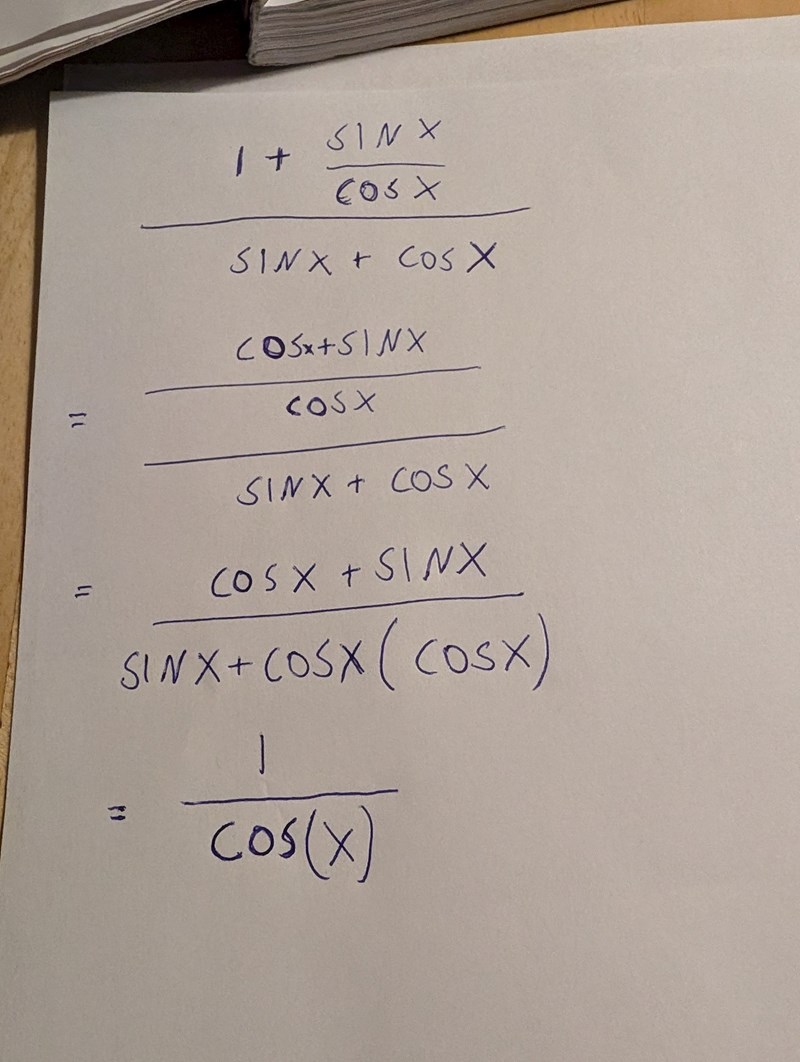 1 + SINX
COSX
SINX + COSX
COSx+SINX
= COSX
SINX + COSX
= COSX + SINX
SINX+COSX(COSX)
1
= COS(X)